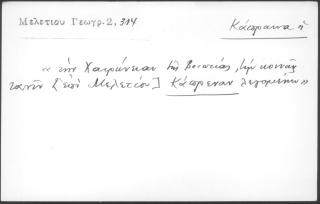 Μελετίου Γεωγρ. 2, 314
Κάπραινα ἡ
« τὴν Χαιρώνειαν τῆς Βοιωτίας, τὴν κοινῶς
τανῦν [ἐπὶ Μελετίου] Κάπρεναν λεγομένην »